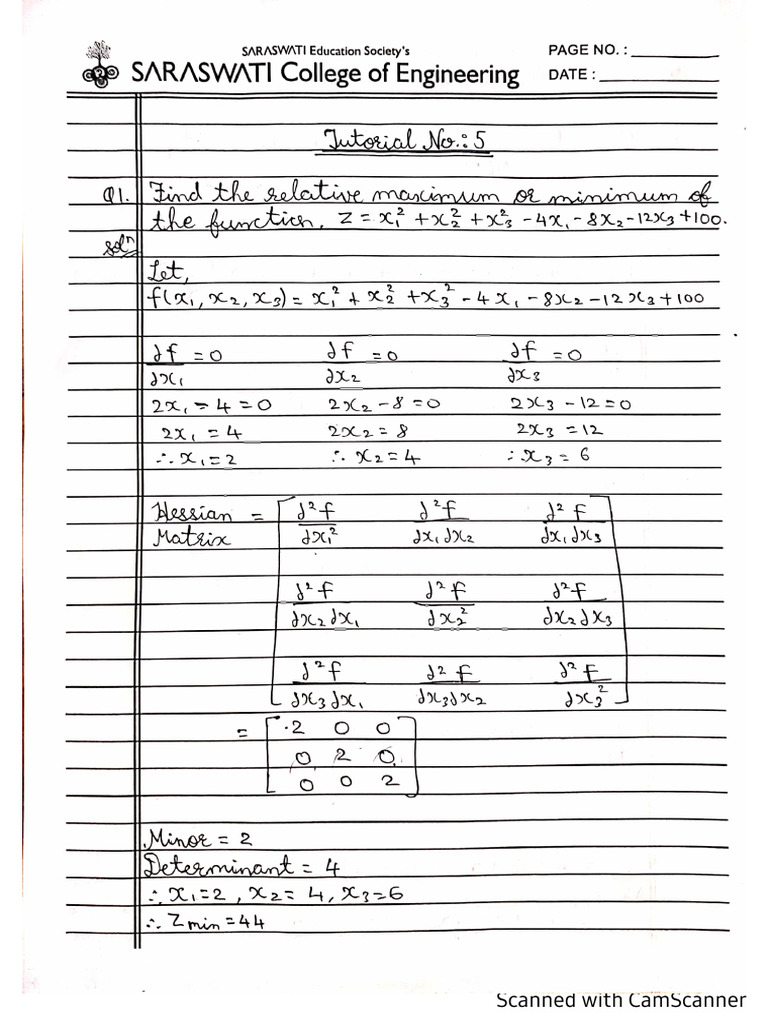 SARASWATI Education Society's
SARASWATI College of Engineering
PAGE NO. :
DATE :
Tutorial No.: 5
Q1. Find the relative maximum or minimum of
the function, Z = x₁² + x₂² + x₃² - 4x₁ - 8x₂ - 12x₃ + 100.
solⁿ
Let,
f(x₁, x₂, x₃) = x₁² + x₂² + x₃² - 4x₁ - 8x₂ - 12x₃ + 100
∂f/∂x₁ = 0 ∂f/∂x₂ = 0 ∂f/∂x₃ = 0
2x₁ - 4 = 0 2x₂ - 8 = 0 2x₃ - 12 = 0
2x₁ = 4 2x₂ = 8 2x₃ = 12
∴ x₁ = 2 ∴ x₂ = 4 ∴ x₃ = 6
Hessian Matrix = [ ∂²f/∂x₁² ∂²f/∂x₁∂x₂ ∂²f/∂x₁∂x₃
∂²f/∂x₂∂x₁ ∂²f/∂x₂² ∂²f/∂x₂∂x₃
∂²f/∂x₃∂x₁ ∂²f/∂x₃∂x₂ ∂²f/∂x₃² ]
= [ 2 0 0
0 2 0
0 0 2 ]
Minor = 2
Determinant = 4
∴ x₁ = 2, x₂ = 4, x₃ = 6
∴ Zmin = 44
Scanned with CamScanner